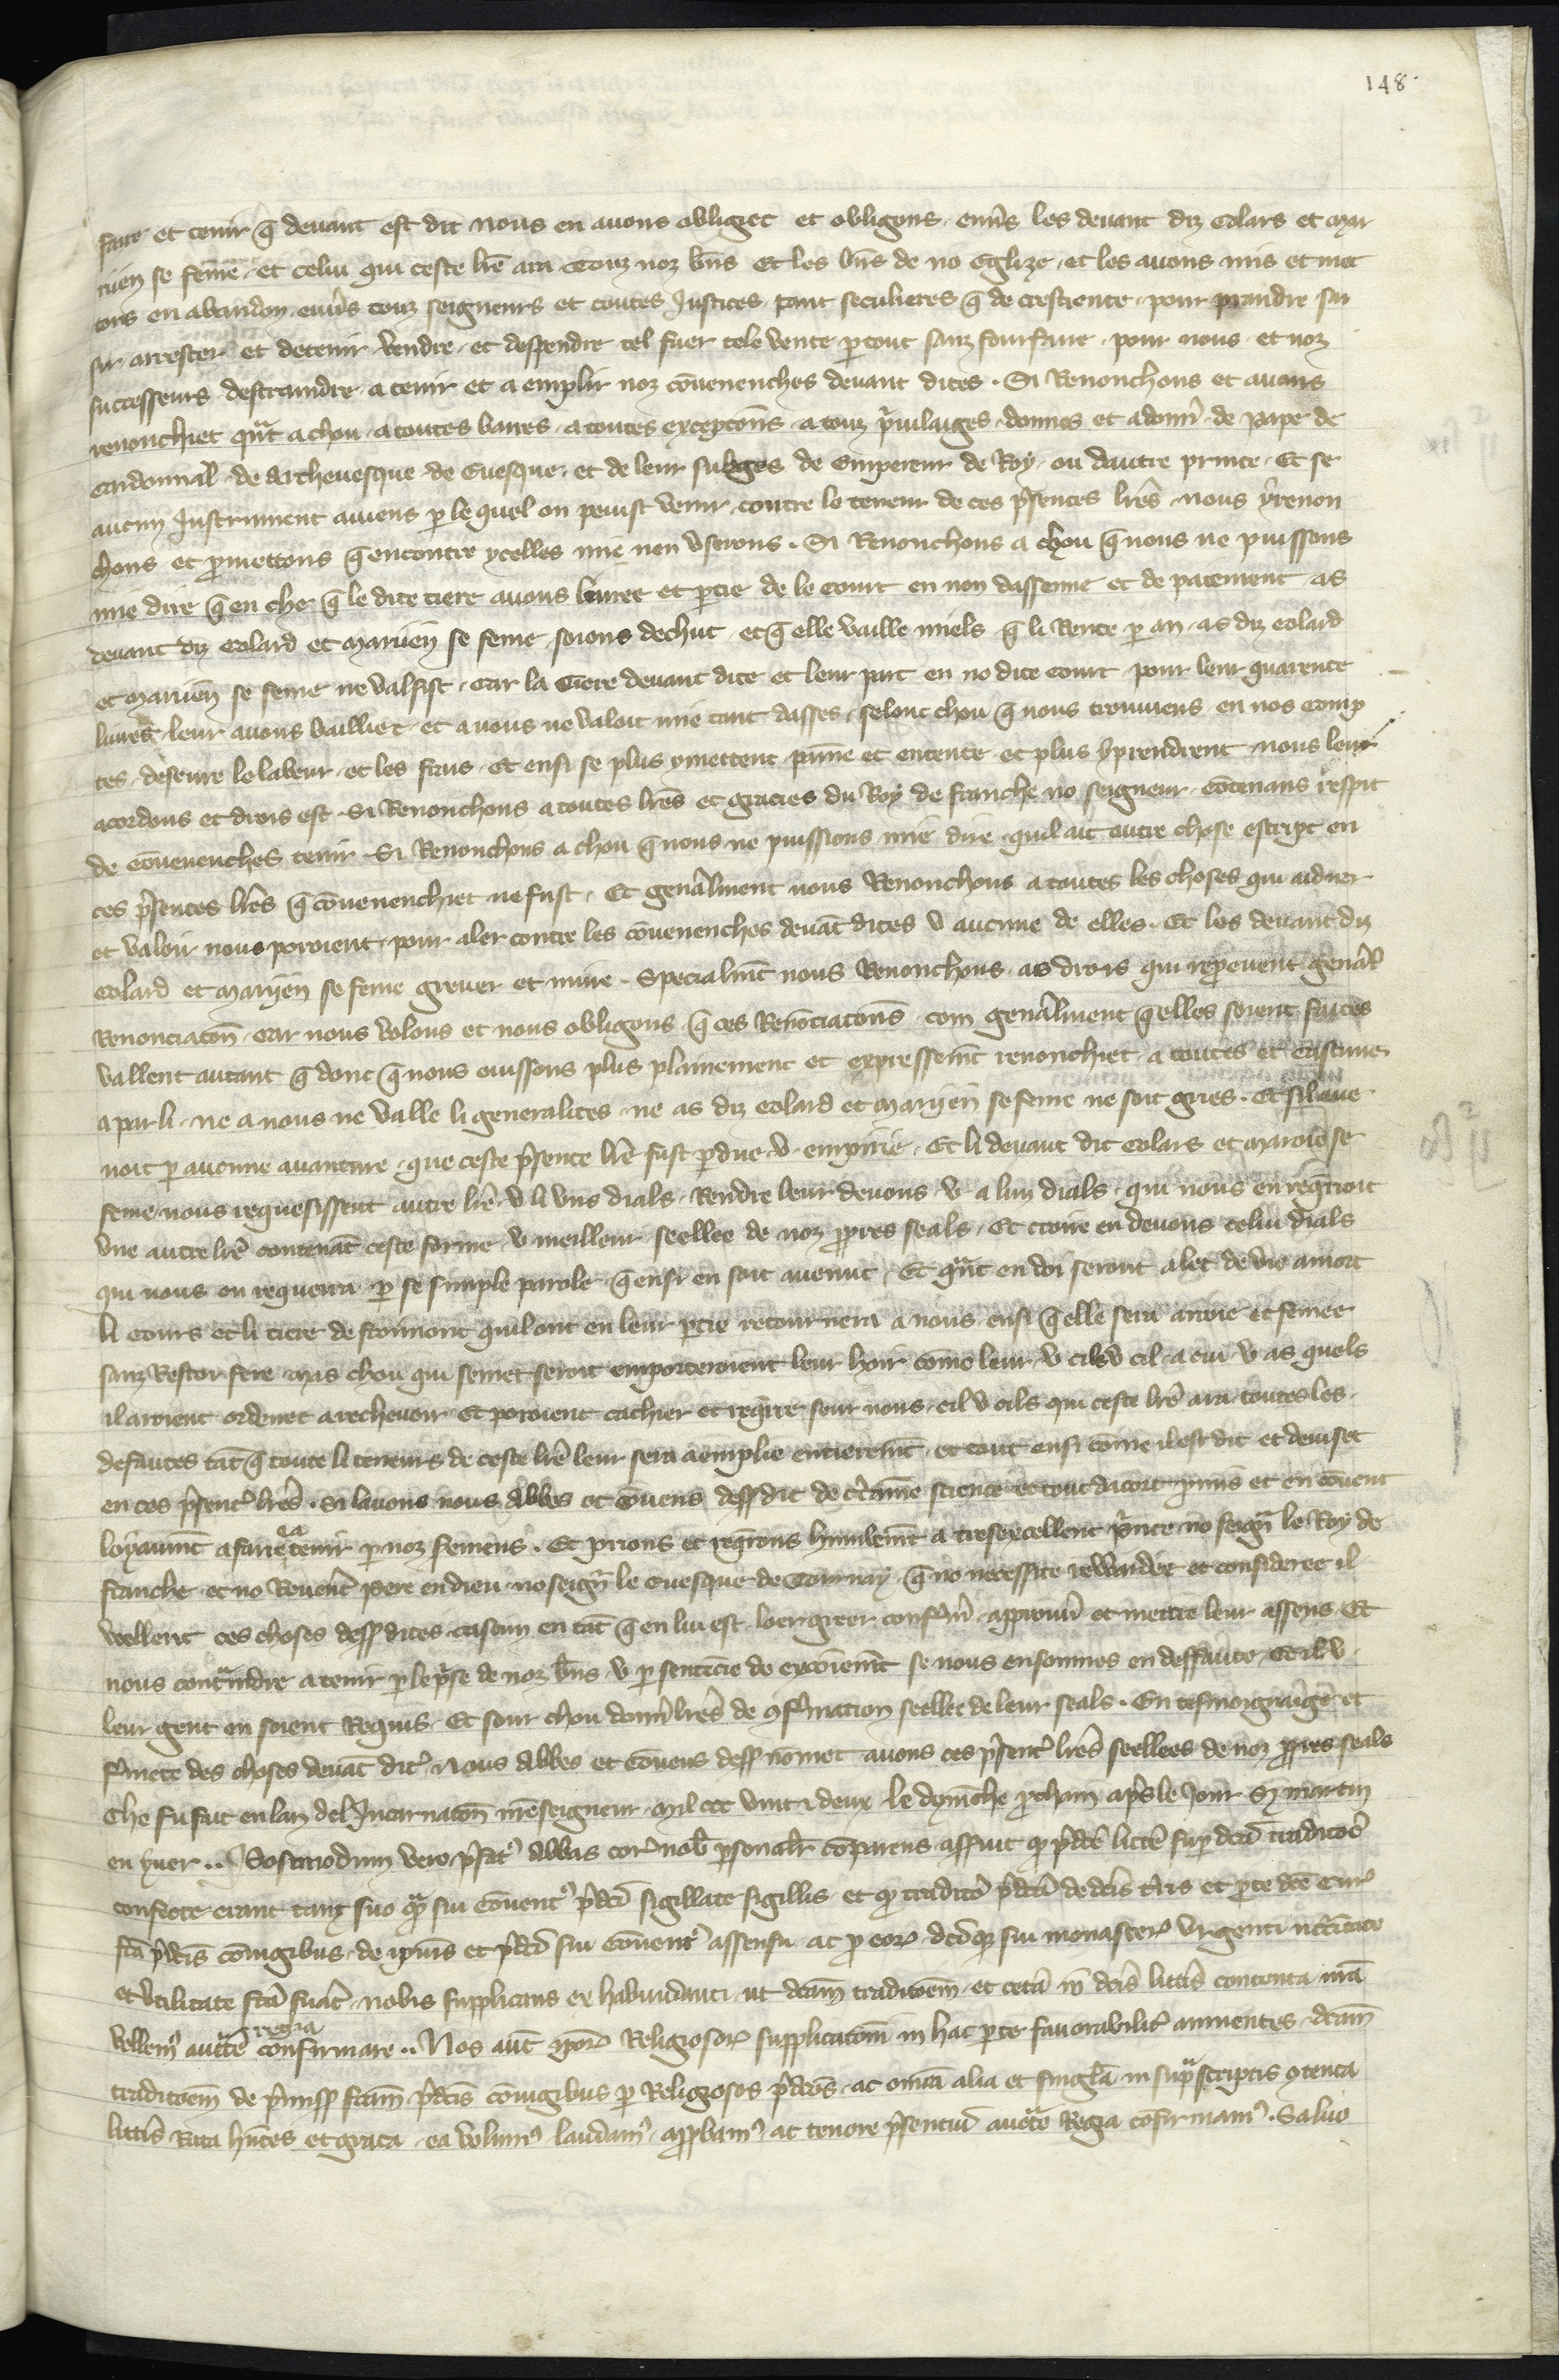 148
faire et tenir q̃ devant est dit nous en avons obliget et obligons envs̃ les devant diz Colars et Mar
rien se feme et celui qui ceste lr̃e ara touz noz bñs et les bñs de no Eglize et les avons mis et met
tons en abandon envs̃ touz seigneurs et toutes Justices tant seculieres q̃ de crestiente pour prandre sai
sir arrester et detenir vendre et despendre tel fuer tele vente ptout sanz fourfaire pour nous et noz
successeurs destraindre a tenir et a emplir noz cōvenenches devant dites . Si Renonchons et avons
renonchiet qñt a chou a toutes barres a toutes exceptōns a touz pvilaiges donnes et a donñ de pape de
Cardonnal de Archevesque de Evesque et de leur subges de Empereur de Roy ou dautre prince Et se
aucun Instrument aviens p le quel on peuist venir contre le teneur de ces p̃sentes lr̃es nous y renon
chons et pmettons q̃ encontre ycelles mie nen userons . Si Renonchons a chou q̃ nous ne puissons
mie dire q̃ en che q̃ le dite tiere avons livree et ptie de le court en non dassenne et de paiement as
devant diz Colard et Marien se feme soions dechut et q̃ elle vaille miels q̃ li Rente p an as diz Colard
et Marien se feme ne valsist Car la tiere devant dite et leur part en no dite court pour leur quarente
livres leur avons bailliet et a nous ne valoit mie tant dasses selonc chou q̃ nous trouviens en nos comp
tes deseure le labeur et les frais Et ensi se plus y mettent paine et entente et plus y prendrent nous leur
acordons et drois est Si Renonchons a toutes lr̃es et gracies du Roy de franche no seigneur cōtenans respit
de cōvenenches tenir Si Renonchons a chou q̃ nous ne puissions mie dire quil ait autre chose escript en
ces p̃sentes lr̃es q̃ cōvenenchiet ne fust Et genãlment nous Renonchons a toutes les choses qui aidier
et valoir nous poroient pour aler contre les cōvenenches devãt dites u aucune de elles Et les devant diz
Colard et Marijen se feme grever et nuire . Specialmt nous Renonchons as drois qui repvevent genãl
Renonciatōn Car nous volons et nous obligons q̃ ces Renōciatōns com genãlment q̃ elles soient faites
vallent autant q̃ donc q̃ nous euissons plus plainement et expressemt renonchiet a toutes et cascune
a par li ne a nous ne valle li generalites ne as diz Colard et Marijen se feme ne soit gries . Et sil ave
noit p aucune avanture que ceste p̃sente lr̃e fust pdue u empirie Et li devant dit Colars et Maroie se
feme nous requesissent autre lr̃e u li uns dials Rendre leur devons u a lun dials qui nous en reqrroit
une autre lr̃e contenãt ceste forme u meilleur seellee de noz ppres seals Et croire en devons celui dials
qui nous en requerra p se simple parole q̃ ensi en soit avenut Et qñt en doi seront alet de vie a mort
li cours et li tiere de quil ont en leur ptie retournera a nous ensi q̃ elle sera aroie et semee
sanz Restor fere Mais chou qui semet seroit emporteroient leur hoir cōme leur u cils u cil a cui u as quels
il aroient ordenet a rechevoir Et poroient cachier et reqrre seur nous cil u cils qui ceste lr̃e ara toutes les
defautes tãt q̃ toute li teneurs de ceste lr̃e leur sera aemplie entieremt et tout ensi cōme il est dit et deviset
en ces p̃sent lr̃es . Si lavons nous Abbes et cōvens dessdit de ctaine science et tout dacort pmis et en cōvent
loyaumt a faire et a tenir p noz siemens . Et prions et reqrons humlemt a tresexcellent pnce no seignr le Roy de
franche et no Revent pere en dieu no seignr le Evesque de Tournay q̃ no necessite rewardee et consideree il
veellent ces choses dessdites cascun en tãt q̃ en lui est loer greer confm̃ approuv̄ et mettre leur assens Et
nous contraindre a tenir p le pse de noz bñs u p sentēcie de excōiemt se nous en sommes en deffaute Et il u
leur gent en soient Requis Et sour chou donñ lr̃es de ɔfirmation seelles de leur seals . En tesmoignaige et
fmete des choses devãt dit Nous Abbes et cōvens dess nōmet avons ces p̃sent lr̃es seellees de noz ppres seals
Che fu fait en lan del Incarnatōn nr̃e seigneur Mil ccc vint ⁊ deux le dymēche pchain aps le Jour S Martin
en yver .. Postmodum vero p̃fat Abbas cor nob psonalr cōparens asseruit qp p̃dcē littē sup dcā traditōe
confecte erant tam suo qm̃ sui cōvent p̃dcī sigillate sigillis et qp traditō p̃dcā de dcīs tr̃is et pte dcē cur
fcā p̃dcīs cōiugibus de ipīus et p̃dcī sui cōvent assensu ac p eor dcīqp sui monaster urgenti necc̄itate
et utilitate fcā fuat nobis supplicans ex habundanti ut dcām traditōem et cetā in dcīs littis contenta nr̃a
regia
vellem auctē confirmare .. Nos aut ipor Religiosor supplicatōni in hac pte favorabilit annuentes dcām
traditōem de pmiss fcām p̃dcīs cōiugibus p Religiosos p̃dcōs ac omīa alia et singla in suprascriptis ɔtenta
littis Rata hñtes et grata ea volum laudam approbam ac tenore p̃sentiū auctē Regia cōfirmam . Salvo